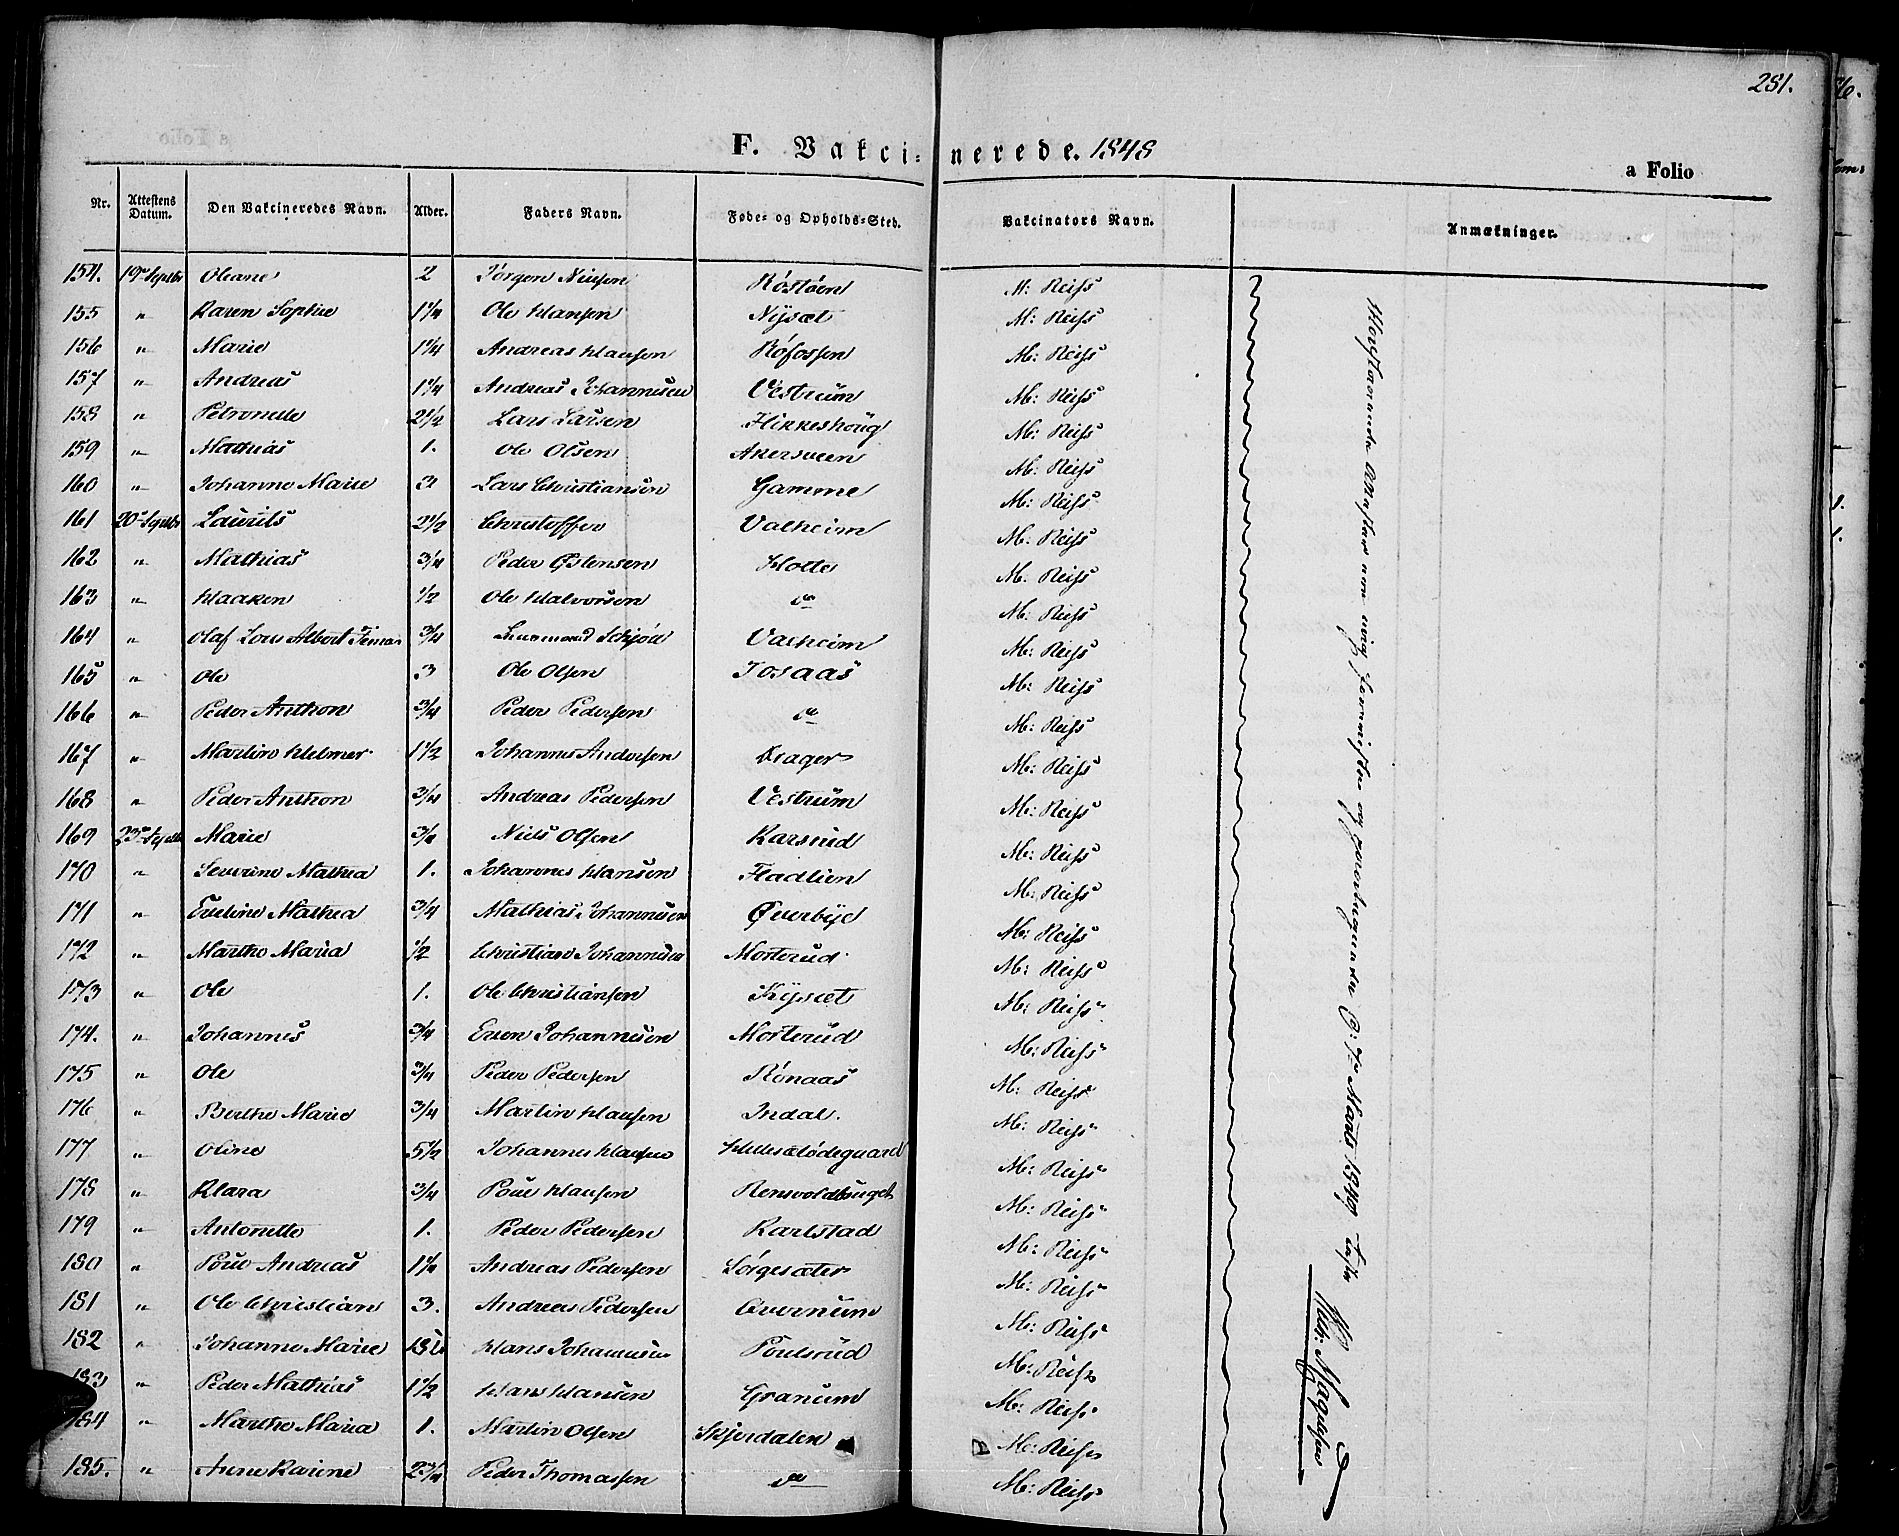 281.
F. Vakcinerede. 1848
a Folio
Nr. Attestens Datum. Den Vakcineredes Navn. Alder. Faders Navn. Føde- og Opholds-Sted. Vakcinators Navn. Anmærkninger.
154. 19de Septbr Oleane 2 Jørgen Nielsen Røstøen M: Reiss
155 " Karen Sophie 1 1/4 Ole Hansen Nysæt M: Reiss
156 " Marie 1 1/4 Andreas Hansen Røfossen M: Reiss
157 " Andreas 1 1/4 Andreas Johannesen Vestrum M: Reiss
158 " Petronelle 2 1/2 Lars Larsen Flikkeshoug M: Reiss
159 " Mathias 1. Ole Olsen Akersveen M: Reiss
160 " Johanne Marie 3 Lars Christiansen Gamme M: Reiss
161 20de Septbr Laurits 2 1/2 Christoffer Valheim M: Reiss
162 " Mathias 3/4 Peder Østensen Holte M: Reiss
163 " Haaken 1/2 Ole Halvorsen do M: Reiss
164 " Olaf Lous Albert 3/4 Schjøll Valheim M: Reiss
165 " Ole 3 Ole Olsen Josaas M: Reiss
166 " Peder Anthon 3/4 Peder Pedersen do M: Reiss
167 " Martin Helmer 1 1/2 Johannes Andersen Krager M: Reiss
168 " Peder Anthon 3/4 Andreas Pedersen Vestrum M: Reiss
169 23de Septbr Marie 3/4 Niels Olsen Karsrud M: Reiss
170 " Severine Mathea 1. Johannes Hansen Fladlien M: Reiss
171 " Eveline Mathea 3/4 Mathias Johannesen Øverbye M: Reiss
172 " Marthe Maria 1/2 Christian Johannesen Morterud M: Reiss
173 " Ole 1. Ole Christiansen Kysæt M: Reiss
174. " Johannes 3/4 Even Johannesen Morterud M: Reiss
175 " Ole 3/4 Peder Pedersen Rønaas M: Reiss
176 " Berthe Marie 3/4 Martin Hansen Indal. M: Reiss
177 " Oline 5 1/2 Johannes Hansen M: Reiss
178 " Klara 3/4 Poul Hansen M: Reiss
179 " Antonette 1. Peder Pedersen Karlstad M: Reiss
180 " Poul Andreas 1 1/4 Andreas Pedersen Sørgesæter M: Reiss
181 " Ole Christian 3. Andreas Pedersen Overnum M: Reiss
182 " Johanne Marie Hans Johannesen Poulsrud M: Reiss
183 " Peder Mathias 1 1/2 Hans Hansen Granum M: Reiss
184 " Marthe Maria 1. Martin Olsen Skjerdalen M: Reiss
185. " Anne Karine 2 3/4 Peder Thomassen do M: Reiss